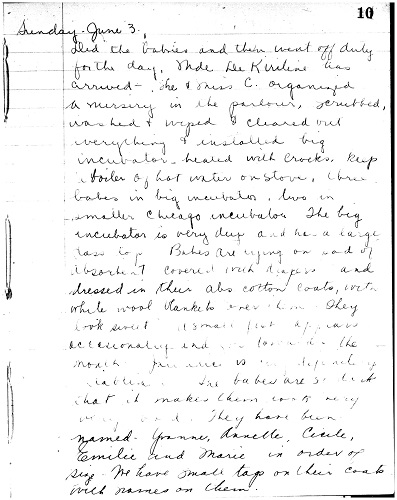 10
Sunday. June 3.
Did the babies and then went off duty
for the day. Mde De Kiriline has
arrived - She & Miss C. organized
a nursery in the parlour, scrubbed,
washed & wiped & cleared out
everything & installed big
incubator - heated with crocks. Keep
boiler of hot water on stove, three
babes in big incubator, two in
smaller Chicago incubator. The big
incubator is very deep and has a large
glass top. Babes are lying on pad of
absorbent covered with diapers and
dressed in their abs cotton coats, with
white wool blankets over them. They
look sweet. small foot appears
occasionally and the
mouth is
The babes are so
that it makes them look very
They have been
named - Yvonne, Annette, Cecile,
Emilie and Marie in order of
size. We have small tags on their coats
with names on them.